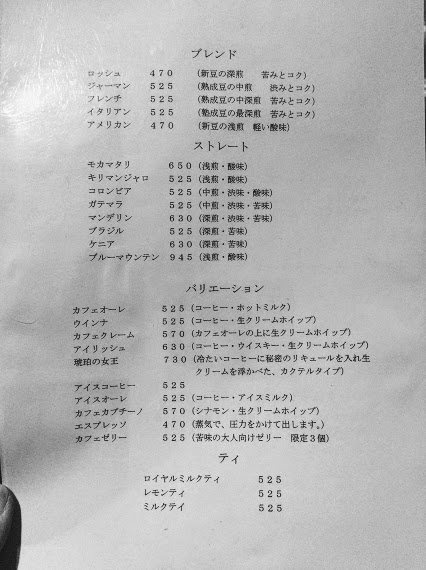 ブレンド
ロッシュ 470 (新豆の深煎 苦みとコク)
ジャーマン 525 (熟成豆の中煎 渋みとコク)
フレンチ 525 (熟成豆の中深煎 苦みとコク)
イタリアン 525 (熟成豆の最深煎 苦みとコク)
アメリカン 470 (新豆の浅煎 軽い酸味)
ストレート
モカマタリ 650 (浅煎・酸味)
キリマンジャロ 525 (浅煎・酸味)
コロンビア 525 (中煎・渋味・酸味)
ガテマラ 525 (中煎・渋味・苦味)
マンデリン 630 (深煎・渋味・苦味)
ブラジル 525 (深煎・苦味)
ケニア 630 (深煎・苦味)
ブルーマウンテン 945 (浅煎・酸味)
バリエーション
カフェオーレ 525 (コーヒー・ホットミルク)
ウインナ 525 (コーヒー・生クリームホイップ)
カフェクレーム 570 (カフェオーレの上に生クリームホイップ)
アイリッシュ 630 (コーヒー・ウイスキー・生クリームホイップ)
琥珀の女王 730 (冷たいコーヒーに秘密のリキュールを入れ生
クリームを浮かべた、カクテルタイプ)
アイスコーヒー 525
アイスオーレ 525 (コーヒー・アイスミルク)
カフェカプチーノ 570 (シナモン・生クリームホイップ)
エスプレッソ 470 (蒸気で、圧力をかけて出します。)
カフェゼリー 525 (苦味の大人向けゼリー 限定3個)
ティ
ロイヤルミルクティ 525
レモンティ 525
ミルクテイ 525